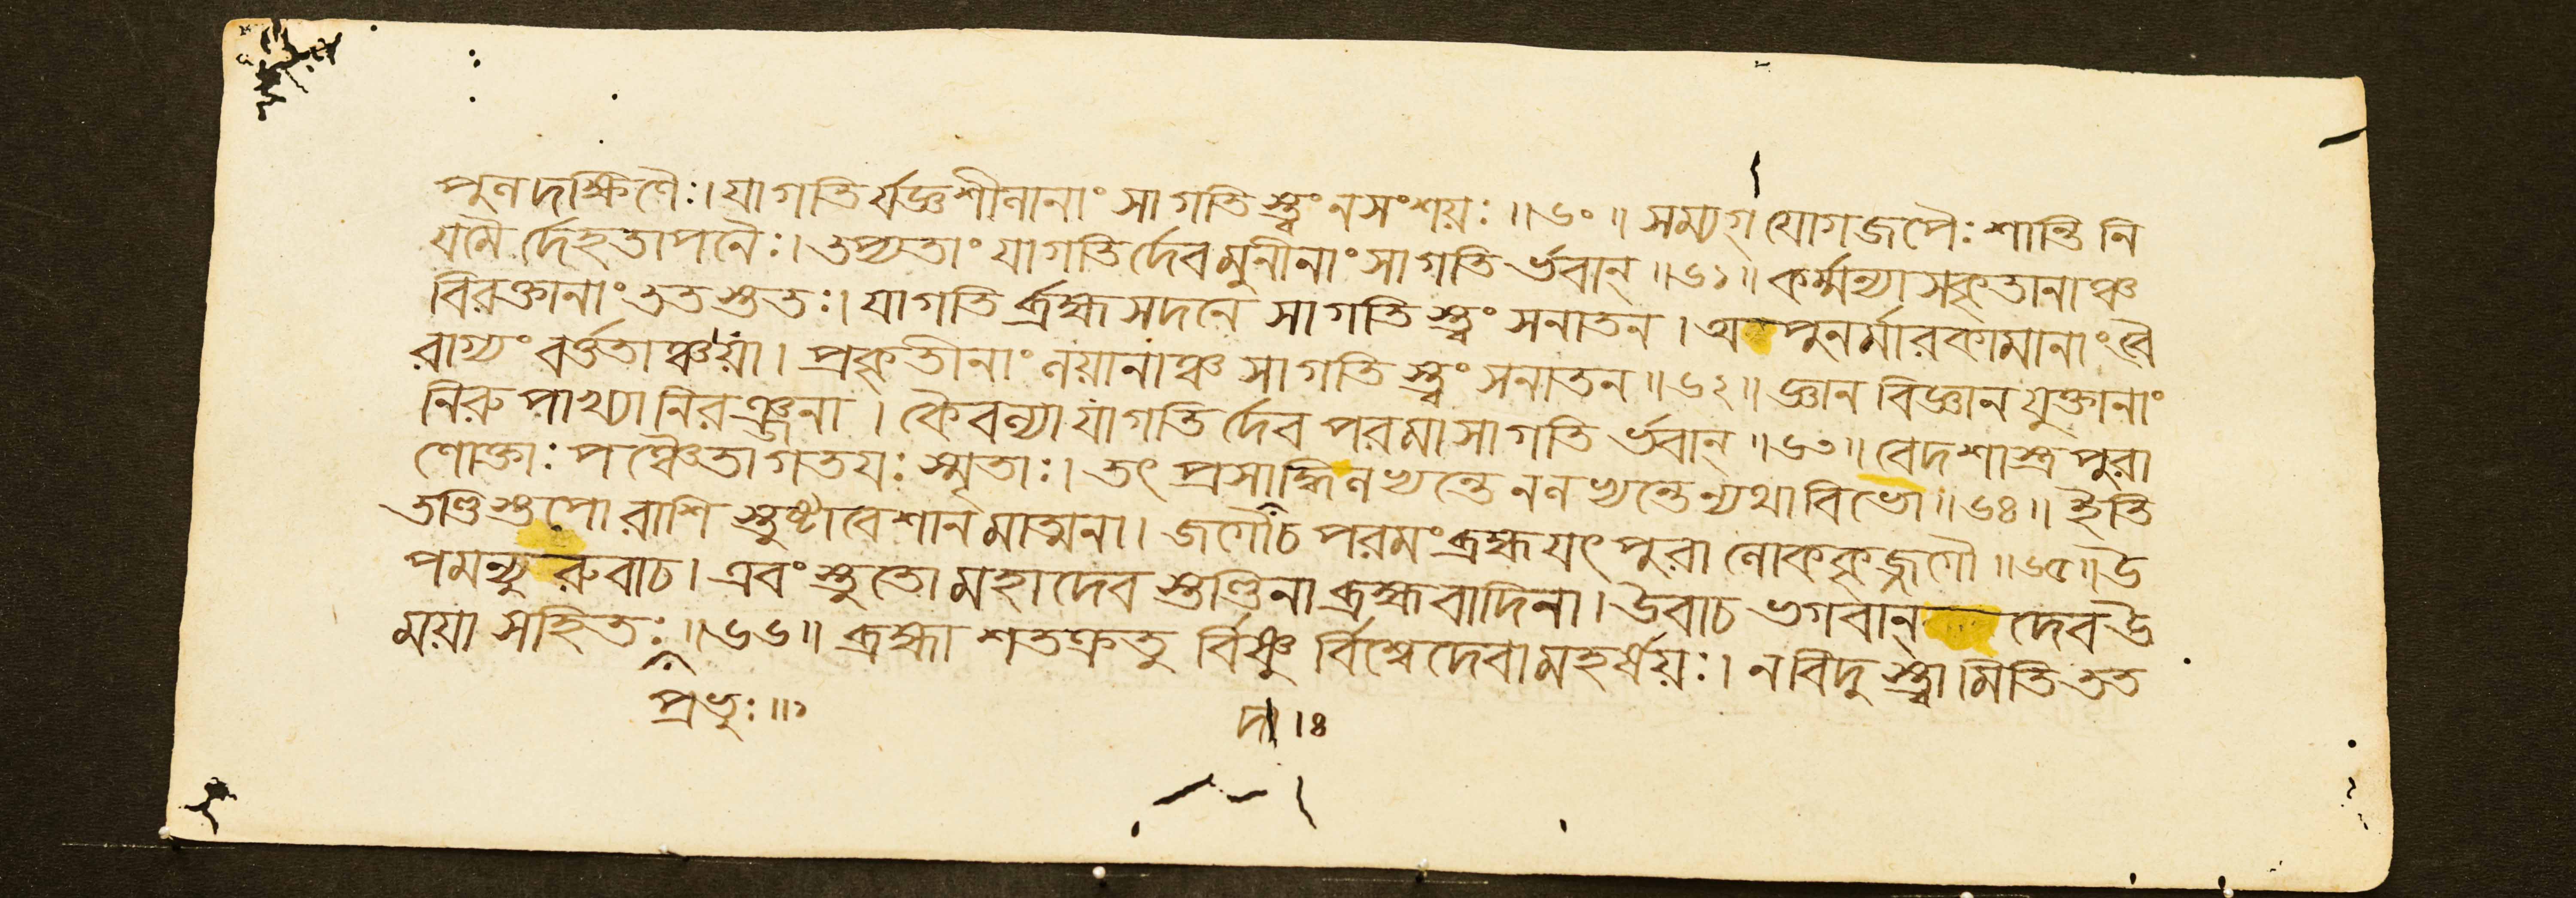 পুনদক্ষিণৈঃ। যাগতির্যজ্ঞশীলানাং সাগতিস্ত্বং নসংশয়ঃ ॥৬০॥ সম্যগ্ যোগজপৈঃ শান্তি নি
যমৈ র্দেহতাপনৈঃ। তপ্যতাং যাগতির্দেবমুনীনাং সাগতি র্ভবান্ ॥৬১॥ কর্ম্মন্যাসকৃতানাঞ্চ
বিরক্তানাং ততস্ততঃ। যাগতি র্ব্রহ্মসদনে সাগতি স্ত্বং সনাতন। অপুনর্মারকামানাং বৈ
রাগ্যং বর্ত্ততাঞ্চয়া। প্রকৃতীনাং লয়ানাঞ্চ সাগতি স্ত্বং সনাতন ॥৬২॥ জ্ঞান বিজ্ঞান যুক্তানাং
নিরুপাখ্যা নিরঞ্জনা। কৈবল্যা যাগতি র্দেব পরমাসাগতি র্ভবান্ ॥৬৩॥ বেদশাস্ত্র পুরা
ণোক্তাঃ পঞ্চৈতাগতয়ঃ স্মৃতাঃ। তৎ প্রসাদ্ধিলভ্যন্তে নলভ্যন্তেন্যথাবিভো ॥৬৪॥ ইতি
তণ্ডিস্তপোরাশি স্তুষ্টাবেশানমাত্মনা। জগৌচ পরমংব্রহ্মযৎ পুরা লোককৃজ্জগৌ ॥৬৫॥ উ
পমন্যুরুবাচ। এবং স্তুতো মহাদেব স্তণ্ডিনা ব্রহ্মবাদিনা। উবাচ ভগবান্ দেব উ
ময়া সহিতঃ ॥৬৬॥ ব্রহ্মা শতক্রতু র্বিষ্ণু র্বিশ্বেদেবা মহর্ষয়ঃ। নবিদু স্ত্বামিতি তত
প্রভুঃ ॥১
দা ।৪